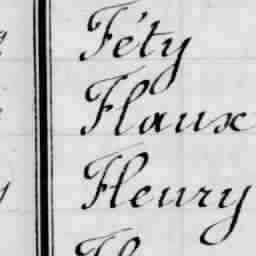 Féty
Flaux
Fleury